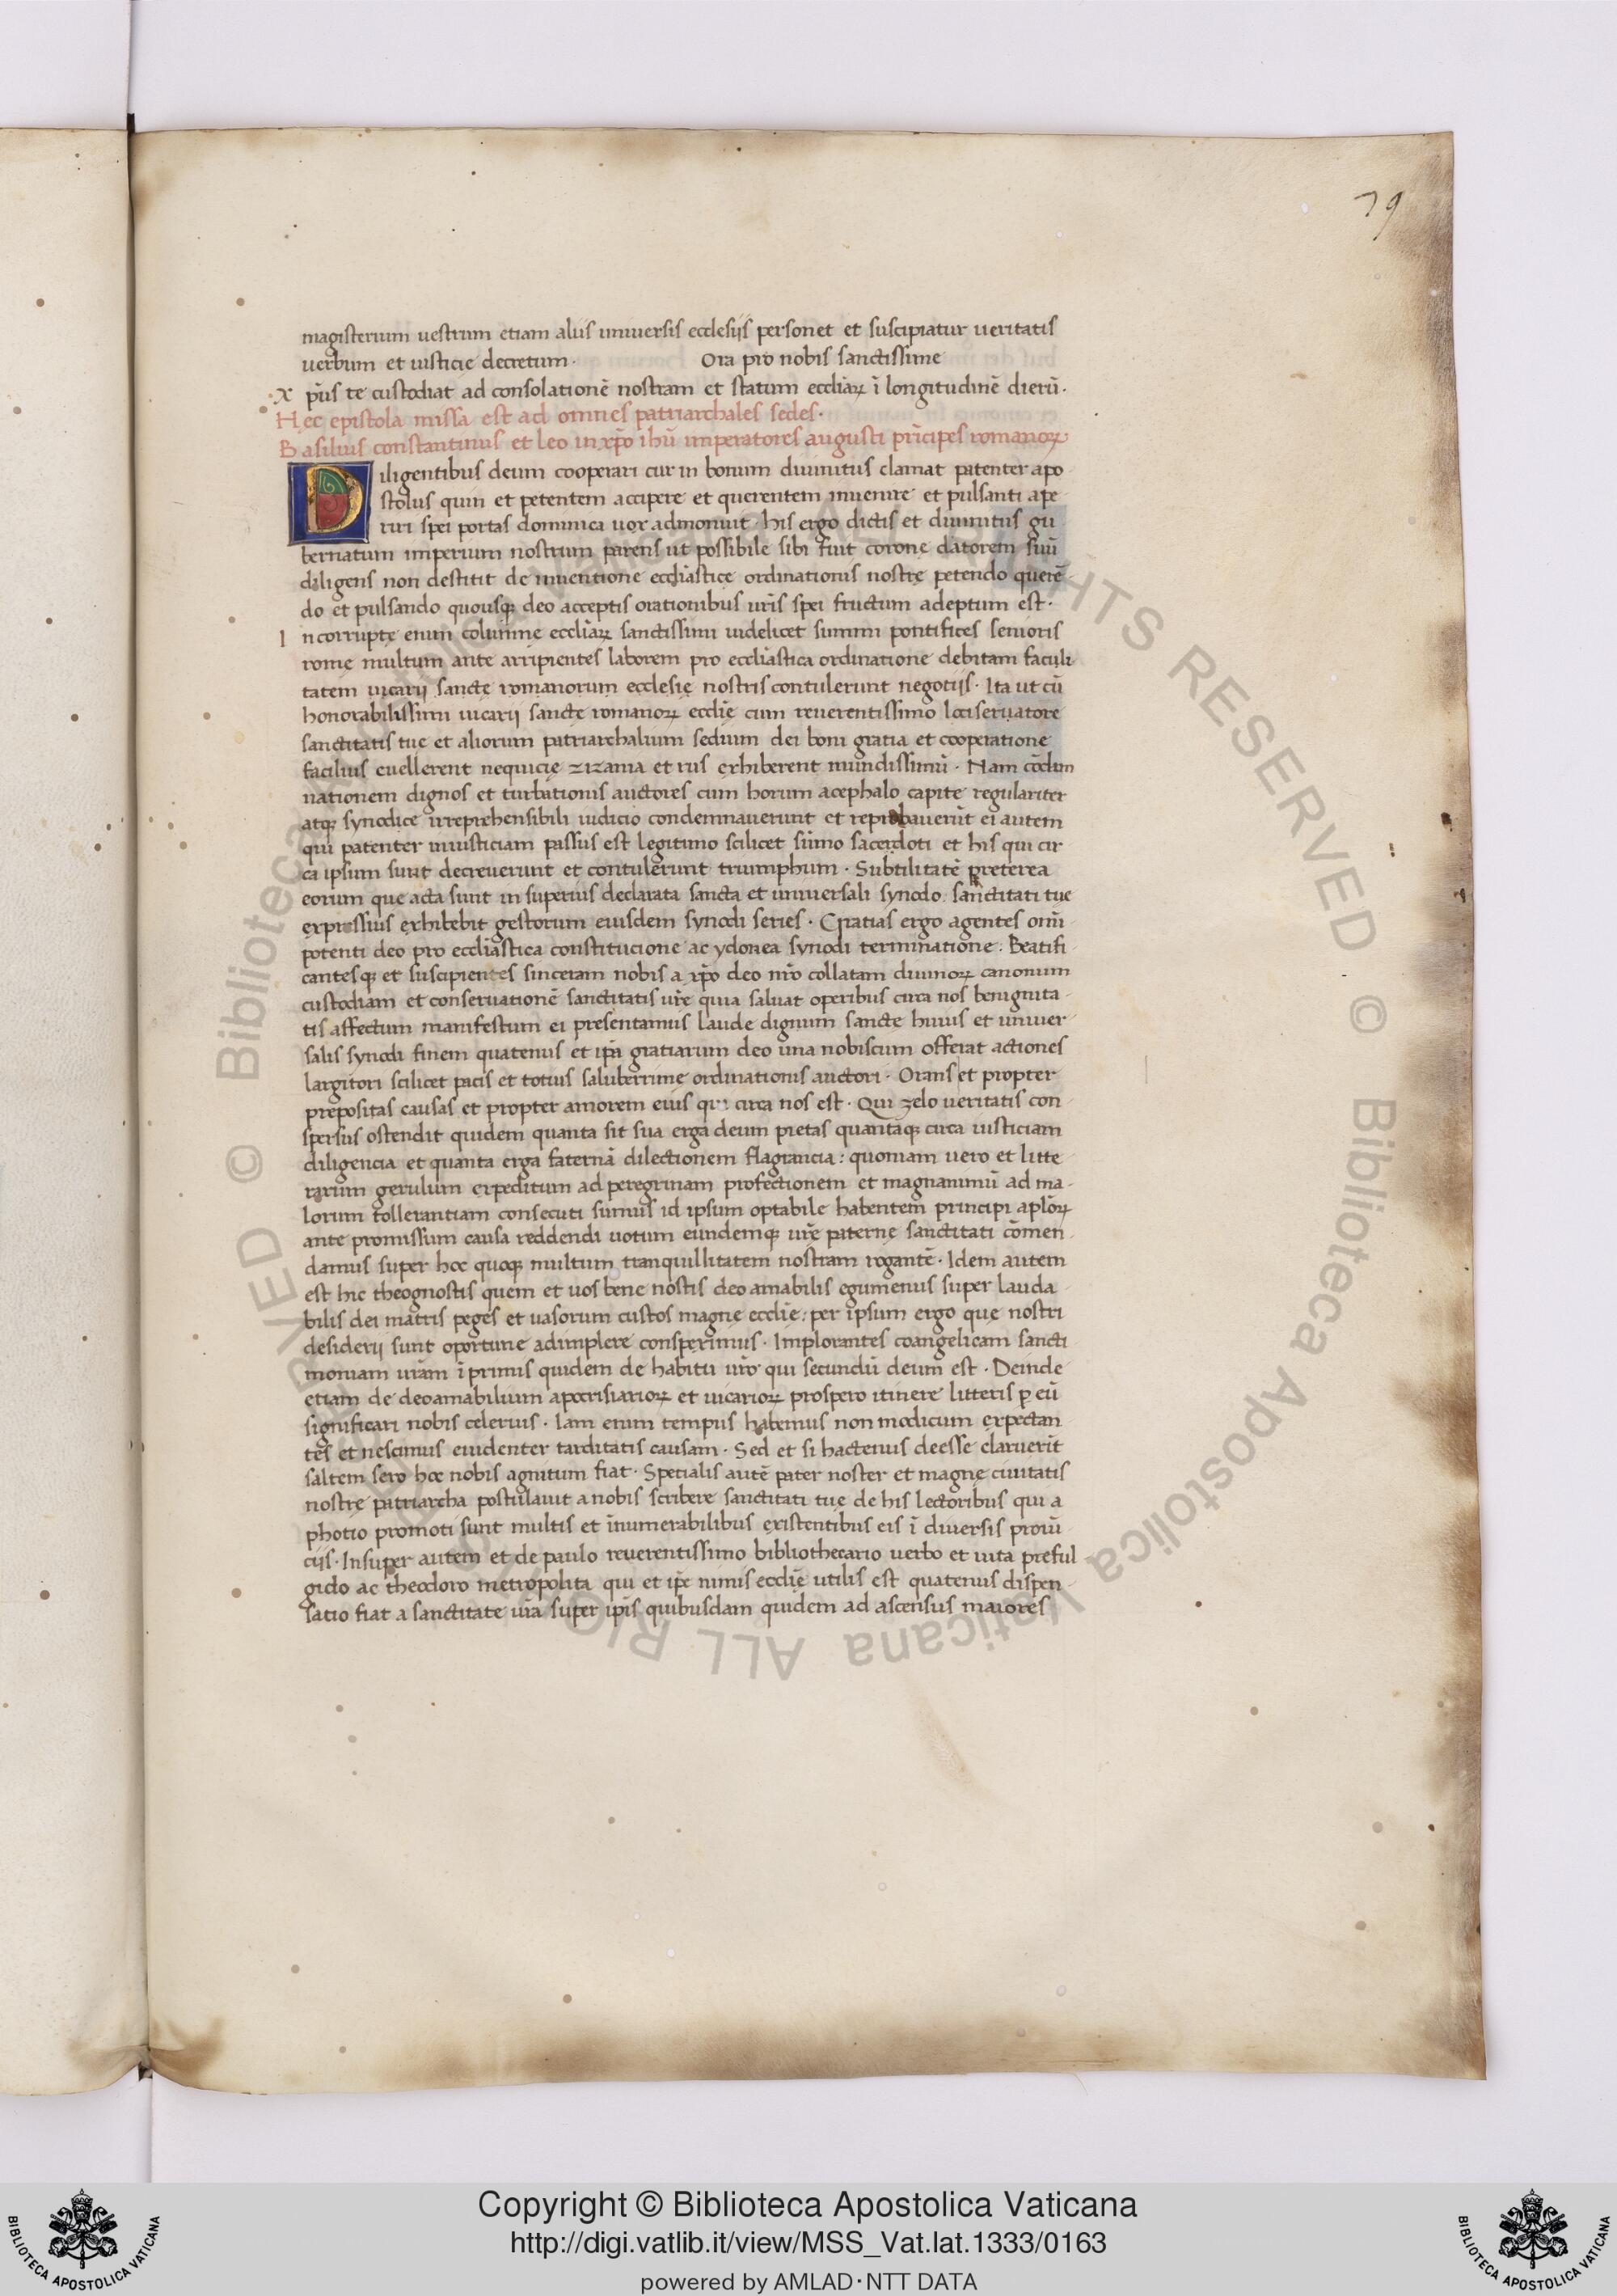 79
magisterium uestrum etiam aliis uniuersis ecclesijs personet et suscipiatur ueritatis
uerbum et iusticie decretum · Ora pro nobis sanctissime
X p̄us te custodiat ad consolationē nostram et statum eccliaꝝ ī longitudinē dierū ·
Hęc epistola missa est ad omnes patriarchales sedes ·
Basilius constantinus et leo in xp̄o ihū imperatores augusti prīcipes romanoꝝ
Diligentibus deum cooperari cur in bonum diuinitus clamat patenter apo
stolus quin et petentem accipere et querentem inuenire et pulsanti ape
riri spei portas dominica uox admonuit · his ergo dictis et diuinitus gu
bernatum imperium nostrum parens ut possibile sibi fuit corone datorem suū
diligens non destitit de inuentione eccliastice ordinationis nostrę petendo querē
do et pulsando quousqꝫ deo acceptis orationibus ur̄is spei fructum adeptum est ·
I ncorruptę enim columne eccliaꝝ sanctissimi uidelicet summi pontifices senioris
romę multum ante arripientes laborem pro eccliastica ordinatione debitam faculi
tatem uicarij sanctę romanorum ecclesię nostris contulerunt negotijs · Ita ut cū
honorabilissimi uicarij sanctę romanoꝝ ecclię cum reuerentissimo lociseruatore
sanctitatis tuę et aliorum patriarchalium sedium dei boni gratia et cooperatione
facilius euellerent nequicię zizania et rus exhiberent mundissimū · Nam cōdem
nationem dignos et turbationis auctores cum horum acephalo capite regulariter
atqꝫ synodice irreprehensibili iudicio condemnauerunt et reprobauerūt ei autem
qui patenter iniusticiam passus est legitimo scilicet sūmo sacerdoti et his qui cir
ca ipsum sunt decreuerunt et contulerunt triumphum · Subtilitatē preterea
eorum que acta sunt in superius declarata sancta et uniuersali synodo sanctitati tuę
expressius exhibebit gestorum eiusdem synodi series · Gratias ergo agentes om̄i
potenti deo pro eccliastica constitucione ac ydonea synodi terminatione · Beatifi
cantesqꝫ et suscipientes sinceram nobis a xp̄o deo nr̄o collatam diuinoꝝ canonum
custodiam et conseruationē sanctitatis ur̄e quia saluat operibus circa nos benignita
tis affectum manifestum ei presentamus laude dignum sanctę huius et uniuer
salis synodi finem quatenus et ip̄a gratiarum deo una nobiscum offerat actiones
largitori scilicet pacis et totius saluberrime ordinationis auctori · Orans et propter
prepositas causas et propter amorem eius qui circa nos est · Qui zelo ueritatis con
spersus ostendit quidem quanta sit sua erga deum pietas quantaqꝫ circa iusticiam
diligencia et quanta erga faternā dilectionem flagrancia : quoniam uero et litte
rarum gerulum expeditum ad peregrinam profectionem et magnanimū ad ma
lorum tollerantiam consecuti sumus id ipsum optabile habentem principi aplōꝝ
ante promissum causa reddendi uotum eundemqꝫ ur̄e paternę sanctitati cōmen
damus super hoc quoqꝫ multum tranquillitatem nostram rogantē · Idem autem
est hic theognostis quem et uos bene nostis deo amabilis egumenus super lauda
bilis dei matris peges et uasorum custos magne ecclię : per ipsum ergo que nostri
desiderij sunt oportune adimplere conspeximus · Implorantes coangelicam sancti
moniam ur̄am ī primis quidem de habitu ur̄o qui secundū deum est · Deinde
etiam de deoamabilium apocrisiarioꝝ et uicarioꝝ prospero itinere litteris ꝑ eū
significari nobis celerius · Iam enim tempus habemus non modicum expectan
tes et nescimus euidenter tarditatis causam · Sed et si hactenus deesse claruerit
saltem sero hoc nobis agnitum fiat · Specialis autē pater noster et magnę ciuitatis
nostrę patriarcha postulauit a nobis scribere sanctitati tuę de his lectoribus qui a
photio promoti sunt multis et inumerabilibus existentibus eis ī diuersis prouī
cijs · Insuper autem et de paulo reuerentissimo bibliothecario uerbo et uita preful
gido ac theodoro metropolita qui et ip̄e nimis ecclię utilis est quatenus dispen
satio fiat a sanctitate ur̄a super ip̄is quibusdam quidem ad ascensus maiores
© Biblioteca Apostolica Vaticana ALL RIGHTS RESERVED
© Biblioteca Apostolica Vaticana ALL RIGHTS RESERVED
BIBLIOTECA APOSTOLICA VATICANA
Copyright © Biblioteca Apostolica Vaticana
http://digi.vatlib.it/view/MSS_Vat.lat.1333/0163
powered by AMLAD·NTT DATA
BIBLIOTECA APOSTOLICA VATICANA